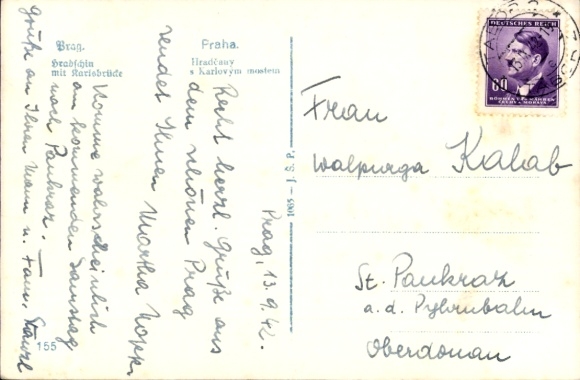 Prag.
Hradschin
mit Karlsbrücke
Praha.
Hradčany
s Karlovým mostem
Prag, 13.9.42.
Recht herzl. Grüße aus
dem schönen Prag
sendet Ihnen Martha
Komme wahrscheinlich
am kommenden Samstag
nach Pankraz.
Grüße an Ihren Mann u. Fam.
155
1065 - J. S. P.
DEUTSCHES REICH
60
BÖHMEN U. MÄHREN
ČECHY A MORAVA
Frau
Walpurga Kalab
St. Pankraz
a.d. Pyhrnbahn
Oberdonau